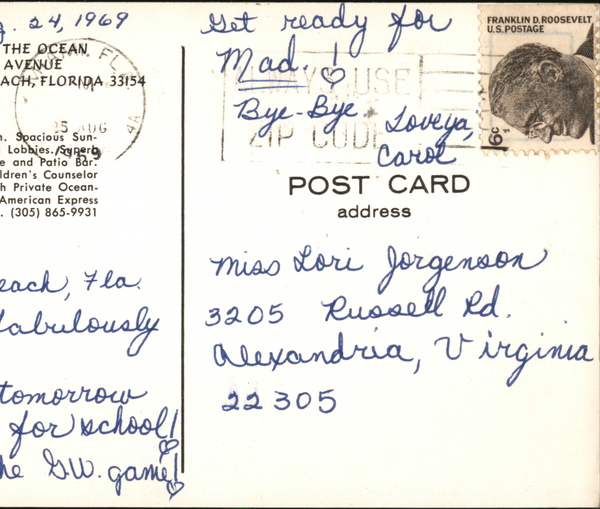 24, 1969
THE OCEAN
AVENUE
ACH, FLORIDA 33154
Spacious Sun-
Lobbies. Superb
e and Patio Bar.
ldren's Counselor
h Private Ocean-
American Express
. (305) 865-9931
each, Fla.
fabulously
tomorrow
for school!
he G.W. game!
Get ready for
Mad. !
Bye-Bye
Loveya,
Carol
FLA
AUG
ALWAYS USE
ZIP CODE
FRANKLIN D. ROOSEVELT
U.S. POSTAGE
6c
POST CARD
address
Miss Lori Jorgenson
3205 Russell Rd.
Alexandria, Virginia
22305